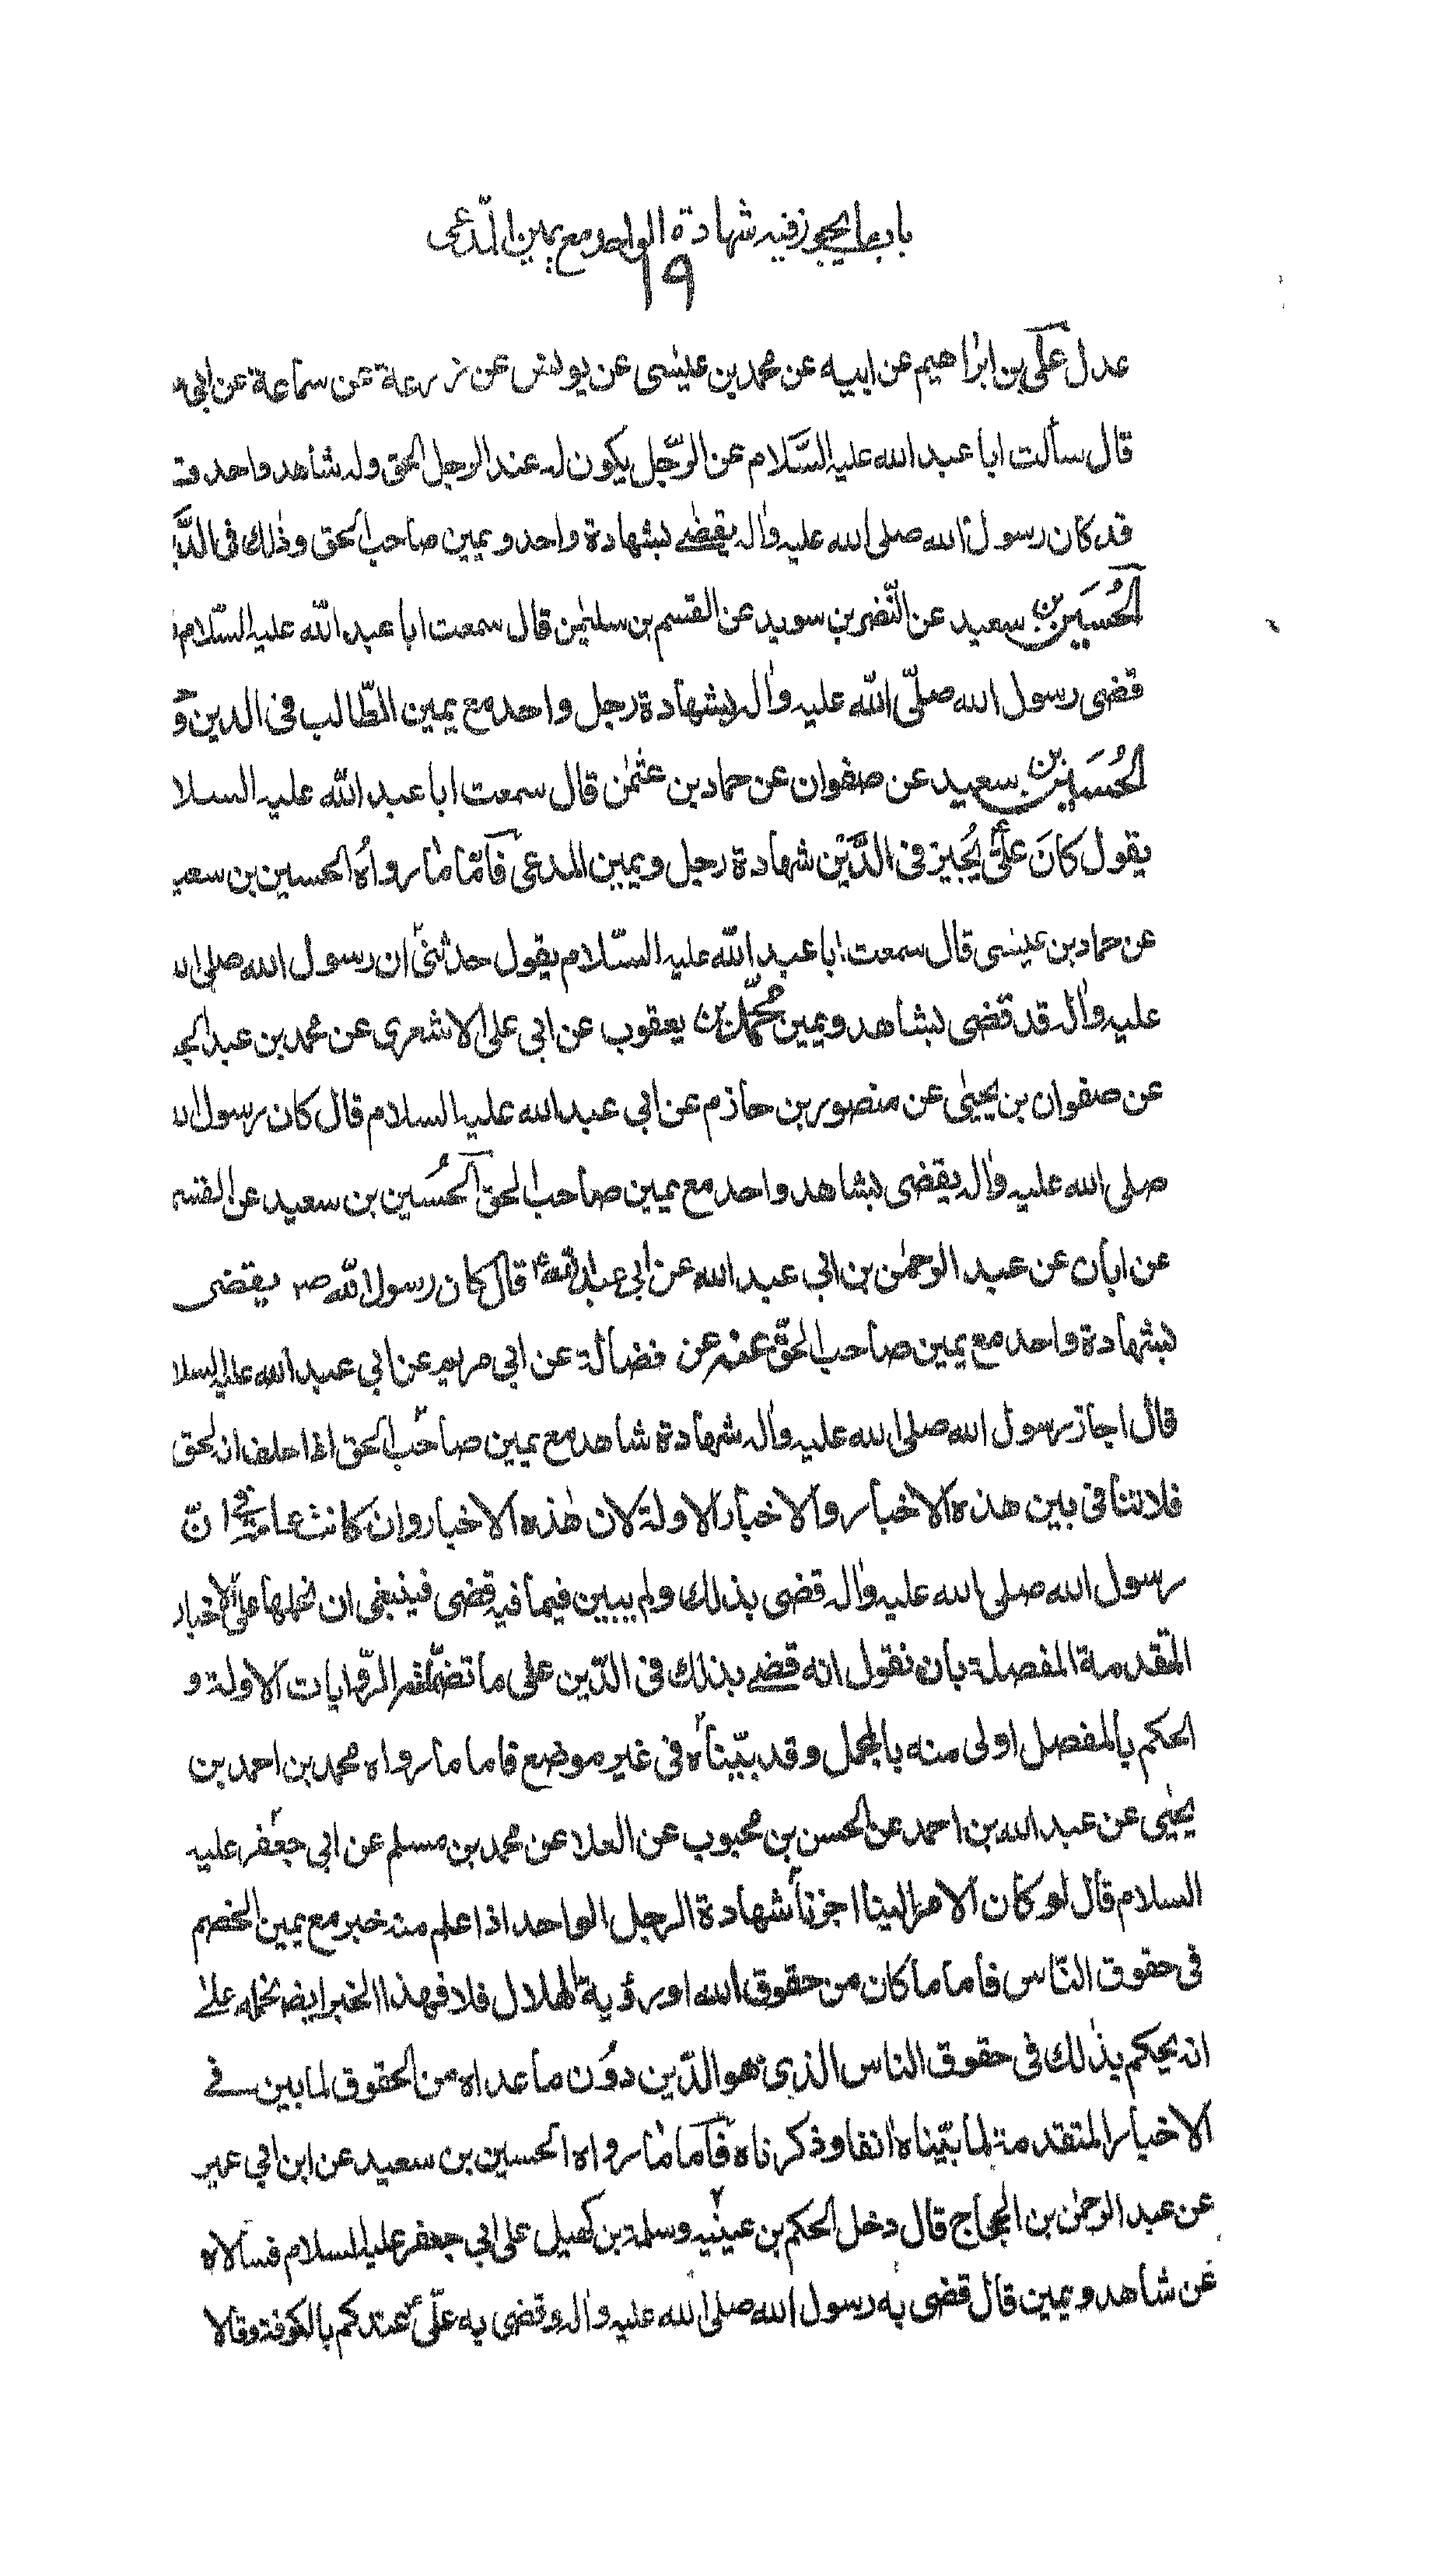 باب ما يجوز فيه شهادة الواحد مع يمين المدّعى
١٩
علىّ بن ابراهيم عن ابيه عن محمد بن عيسى عن يونس عن زرعة عن سماعة عن ابى
قال سألت ابا عبد الله عليه السَّلام عن الرّجل يكون له عند الرجل الحق وله شاهد واحد
قد كان رسول الله صلى الله عليه واٰله يقضے بشهادة واحد ويمين صاحب الحق وذٰلك فى
الحُسَين بن سعيد عن النّضر بن سويد عن القسم بن سليمٰن قال سمعت ابا عبد الله عليه السّلام
قضى رسول الله صلّى اللّه عليه واٰله بشهادة رجل واحد مع يمين الطّالب فى الدين و
الحُسَين بن سعيد عن صفوان عن حماد بن عثمٰن قال سمعت ابا عبد اللّه عليه السلا
يقول كانَ علىّ يُجيز فى الدَّيْن شهادة رجل ويمين المدعى فاَمّا ما رواه الحسين بن سعيـ
عن حماد بن عيسى قال سمعت ابا عبد اللّه عليه السّلام يقول حدثنى ان رسول الله صلى
عليه واٰله قد قضى بشاهد ويمين محُمّد بن يعقوب عن ابى على الاشعرى عن محمد بن عبد الجـ
عن صفوان بن يحيىٰ عن منصور بن حازم عن ابى عبد الله عليه السلام قال كان رسول
صلى الله عليه واٰله يقضى بشاهد واحد مع يمين صاحب الحق الحُسين بن سعيد عن القسم
عن ابان عن عبد الرحمٰن بن ابى عبد الله عن ابى عبد اللّه ع قال كان رسول اللّه ص يقضى
بشهادة واحد مع يمين صاحب الحقّ عنه عن فضالة عن ابى مريم عن ابى عبد الله عليه السلا
قال اجاز رسول الله صلى الله عليه واٰله شهادة شاهد مع يمين صاحب الحق اذا حلف انه لحق
فلا تنافى بين هذه الاخبار والاخبار الاولة لان هٰذه الاخبار وان كانت عامة انّ
رسول الله صلى الله عليه واٰله قضى بذلك ولم يبين فيما فيه قضى فينبغى ان نحملها على الاخبار
المتقدمة المفصلة بان نقول انه قضے بذلك فى الدّين على ما تضمّنته الرّوايات الاولة و
الحكم بالمفصل اولى منه بالمجمل وقد بيّناه فى غير موضع فاما ما رواه محمد بن احمد بن
يحيٰى عن عبد الله بن احمد عن الحسن بن محبوب عن العلا عن محمد بن مسلم عن ابى جعفر عليه
السلام قال لو كان الامر الينا اجزنا شهادة الرجل الواحد اذا علم منه خير مع يمين الخصم
فى حقوق النّاس فاما ما كان من حقوق الله او رؤية الهلال فلا فهذا الخبر ايضا نحمله علىٰ
انه يحكم بذلك فى حقوق الناس الذى هو الدّين دوُن ما عداه من الحقوق لما بين فے
الاخبار المتقدمة لما بيّناه اٰنفا وذكرناه فاَما ما رواه الحسين بن سعيد عن ابن ابى عمير
عن عبد الرحمٰن بن الحجاج قال دخل الحكم بن عيينه وسلمة بن كهيل على ابى جعفر عليه السلام فسألاه
عن شاهد ويمين قال قضى به رسول الله صلى الله عليه واٰله وقضى به علىّ ع عندكم بالكوفة وقالا